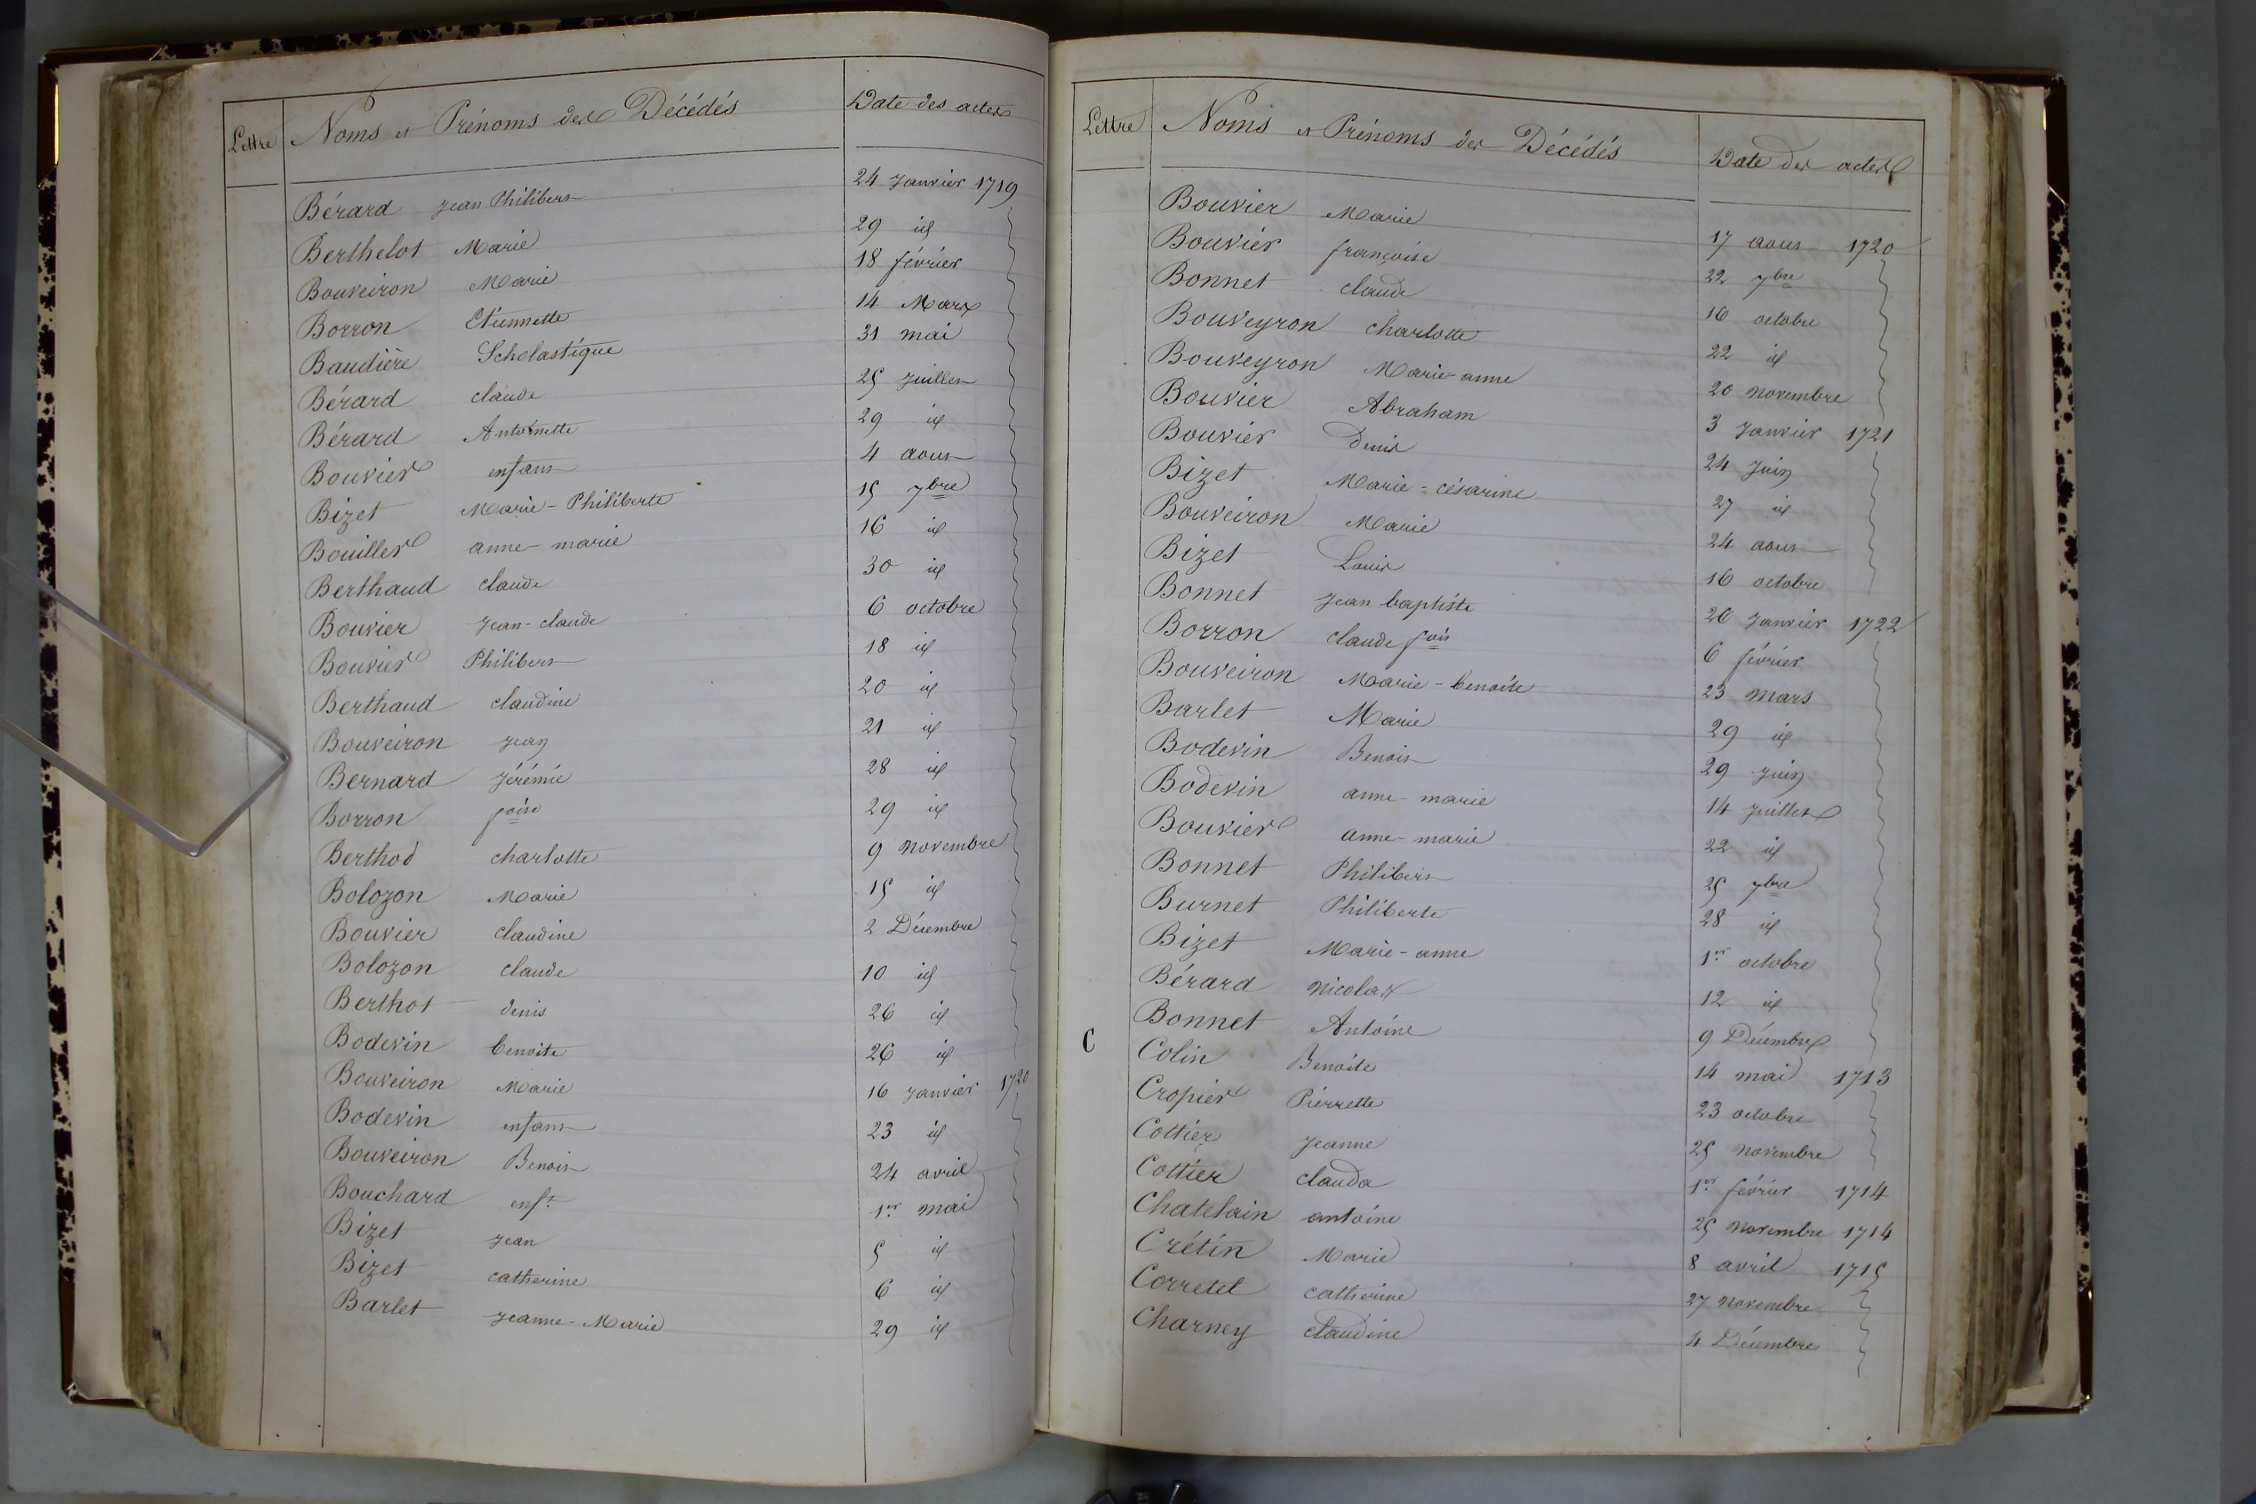 Lettre Noms et Prénoms des Décédés Date des actes
Bérard Jean Philibert 24 Janvier 1719
Berthelot Marie 29 id
Bouveiron Marie 18 février
Borron Etiennette 14 Mars
Baudière Scholastique 31 mai
Bérard claude 25 Juillet
Bérard Antoinette 29 id
Bouvier enfant 4 aout
Bizet Marie-Philiberte 15 7bre
Bouiller anne-marie 16 id
Berthaud claude 30 id
Bouvier Jean-claude 6 octobre
Bouvier Philibert 18 id
Berthaud claudine 20 id
Bouveiron Jean 21 id
Bernard Jérémie 28 id
Borron foise 29 id
Berthod charlotte 9 novembre
Bolozon Marie 15 id
Bouvier claudine 2 Décembre
Bolozon claude 10 id
Berthot denis 26 id
Bodevin benoite 26 id
Bouveiron Marie 16 Janvier 1720
Bodevin enfant 23 id
Bouveiron Benoit 24 avril
Bouchard enft 1er mai
Bizet Jean 5 id
Bizet catherine 6 id
Barlet Jeanne-Marie 29 id
Lettre Noms et Prénoms des Décédés Date des actes
Bouvier Marie 17 aout 1720
Bouvier françoise 22 7bre
Bonnet claude 16 octobre
Bouveyron charlotte 22 id
Bouveyron Marie-anne 20 novembre
Bouvier Abraham 3 Janvier 1721
Bouvier Denis 24 Juin
Bizet Marie-césarine 27 id
Bouveiron Marie 24 aout
Bizet Louis 16 octobre
Bonnet Jean baptiste 26 Janvier 1722
Borron claude fois 6 février
Bouveiron Marie-benoite 23 mars
Barlet Marie 29 id
Bodevin Benoit 29 Juin
Bodevin anne-marie 14 Juillet
Bouvier anne-marie 22 id
Bonnet Philibert 25 7bre
Burnet Philiberte 28 id
Bizet Marie-anne 1er octobre
Bérard nicolas 12 id
Bonnet Antoine 9 Décembre
C Colin Benoite 14 mai 1713
Cropier Pierrette 23 octobre
Cottier Jeanne 25 novembre
Cottier clauda 1er février 1714
Chatelain antoine 25 novembre 1714
Crétin Marie 8 avril 1715
Corretel catherine 27 novembre
Charney claudine 4 Décembre